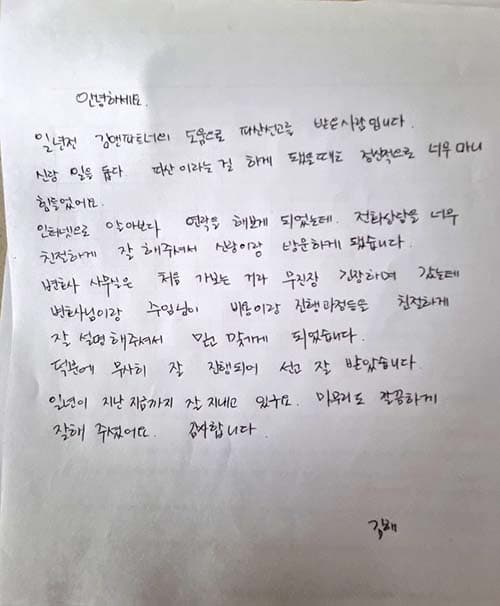 안녕하세요.
일년전 김앤파트너의 도움으로 파산선고를 받은 사람입니다.
신랑 일을 돕다. 파산 이라는 걸 하게 됐을때도 정신적으로 너무 마니
힘들었어요.
인터넷으로 알아보다 연락을 해보게 되었는데. 전화상담을 너무
친절하게 잘 해주셔서 신랑이랑 방문하게 됐습니다.
변호사 사무실은 처음 가보는 거라 무진장 긴장하며 갔는데
변호사님이랑 주임님이 비용이랑 진행과정등을 친절하게
잘 설명해주셔서 믿고 맡기게 되었습니다.
덕분에 무사히 잘 진행되어 선고 잘 받았습니다.
일년이 지난 지금까지 잘 지내고 있구요. 마무리도 깔끔하게
잘해 주셨어요. 감사합니다.